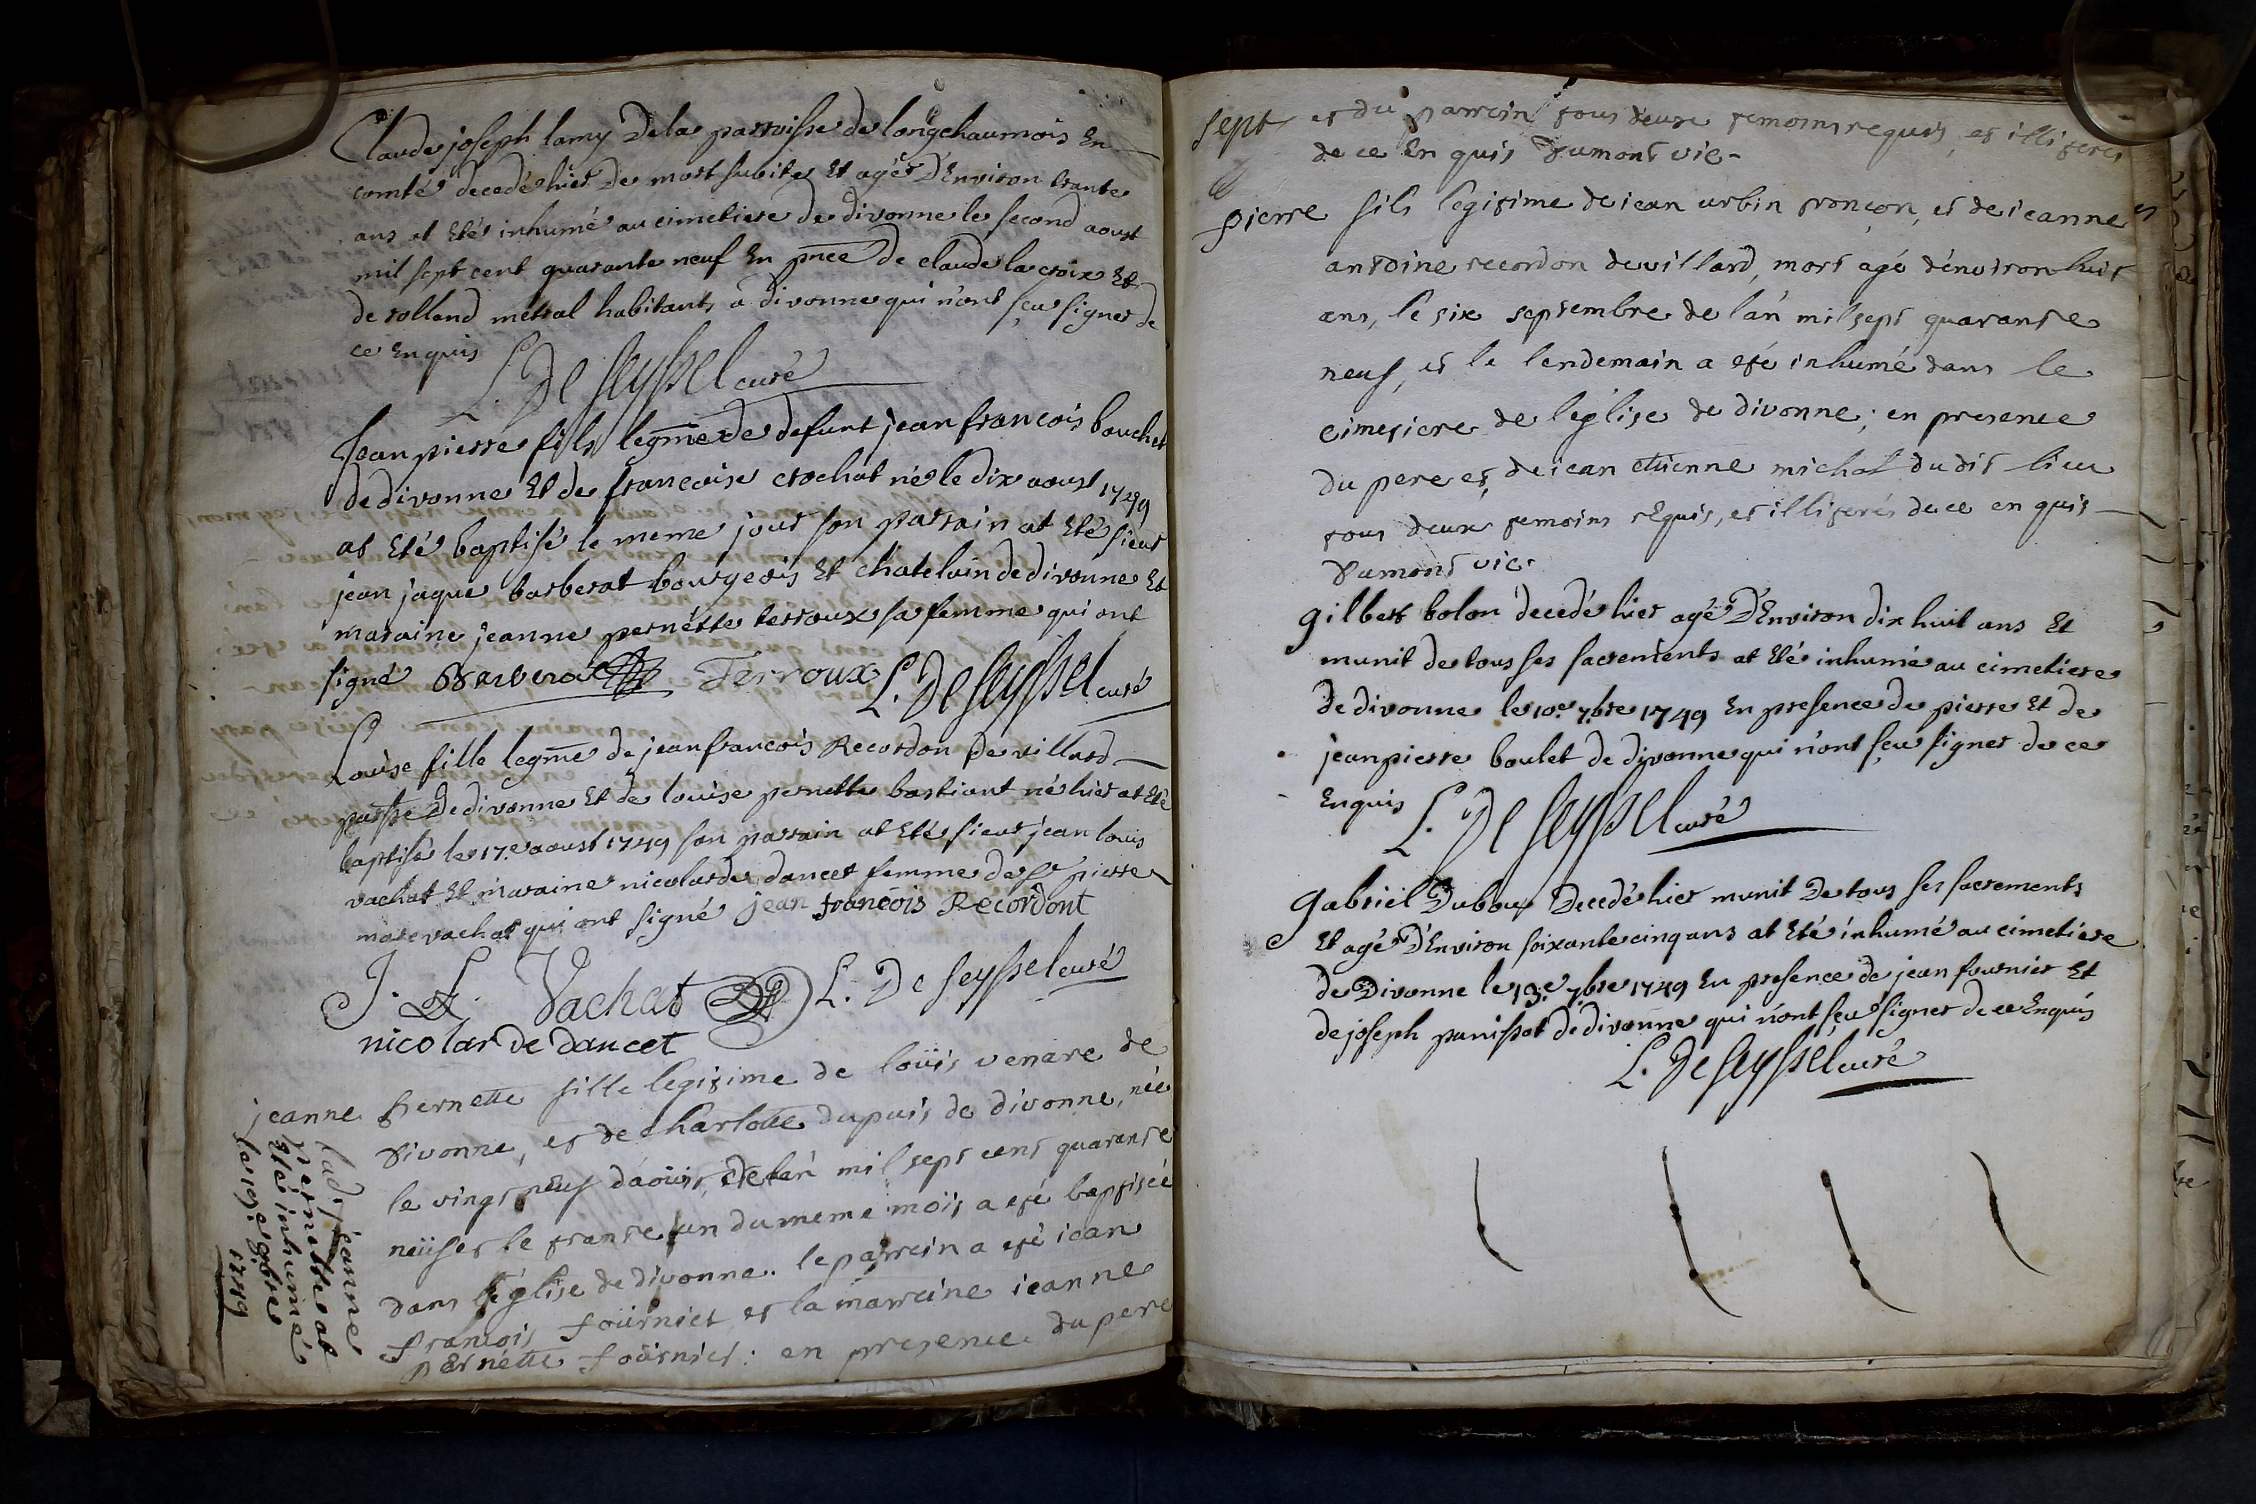 Claude joseph lamy Dela parroisse de longchaumois En
comté decedé hier De mort subite Et agé D'Environ trante
ans at Eté inhumé au cimetiere de divonne le second aoust
mil sept cent quarante neuf En pnce de claude lacroix Et
de rolland metral habitants a divonne qui n'ont sçu signer de
ce Enquis L. De Seyssel curé
Jean pierre fils legme de defunt jean francois bouchet
de divonne Et de francoise crochat né le dix aoust 1749
at Eté baptisé le meme jour son parrain at Eté sieur
jean jaque barberat bourgeois Et chatelain de divonne Et
maraine jeanne pernétte terroux sa femme qui ont
signé Barberat Terroux L. De Seyssel curé
Louise fille legme de jean francois Recordon de villard
parsse De divonne Et de louise pernette bastiant né hier at Eté
baptisé le 17.e aoust 1749 son parrain at Eté sieur jean louis
vachat Et maraine nicolarde dancet femme de sr pierre
marc vachat qui ont signé jean francois Recordont
J. L. Vachat L. De Seyssel curé
nicolarde dancet
jeanne pernette fille legitime de loüis venare de
divonne, et de charlotte dupuis de divonne, née
le vingt neuf d'aoüst, de l'an mil sept cent quarante
neüf et le trante un du meme mois a eté baptisée
dans l'église de divonne.. le parrein a eté ican
francois foürnier et la marreine icanne
pernétte foürnier: en presence du pere
ladt jeanne
pernette at
Eté inhumé
le 19.e 9bre
1749
sept et du parrein tous deux temoins requis, et illiterés
de ce En quis Dumont vic-
pierre fils legitime de ican urbin ponçon, et de icanne
antoine recordon de villard, mort agé d'environ huit
ans, le six septembre de l'an mil sept quarante
neuf, et le lendemain a eté inhumé dans le
cimetiere de l'eglise de divonne; en presence
du pere et, de ican etienne michat du dit lieu
tous deux temoins requis, et illiterés de ce en quis
Dumont vic.
gilbert bolon decedé hier agé D'Environ dix huit ans Et
munit de tous ses sacrements at Eté inhumé au cimetiere
de divonne le 10.e 7bre 1749 En presence de pierre Et de
jean pierre boulet de divonne qui n'ont sçu signer de ce
Enquis L. De Seyssel curé
gabriel Dubouy Decedé hier munit De tous ses sacrements
Et agé D'Environ soixante cinq ans at Eté inhumé au cimetiere
de Divonne le 13.e 7bre 1749 En presence de jean fournier Et
de joseph panissot de divonne qui n'ont sçu signer de ce Enquis
L. De Seyssel curé